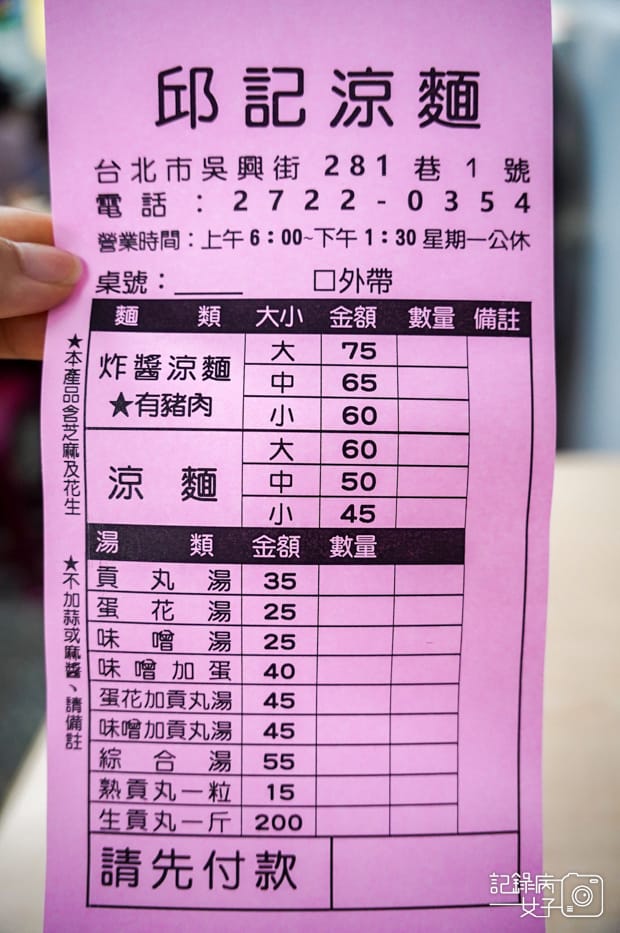 邱記涼麵
台北市吳興街 281 巷 1 號
電話：2722-0354
營業時間：上午 6：00~下午 1：30 星期一公休
桌號：_____ □外帶
麵類 大小 金額 數量 備註
炸醬涼麵
★有豬肉
大 75
中 65
小 60
涼麵
大 60
中 50
小 45
湯類 金額 數量
貢丸湯 35
蛋花湯 25
味噌湯 25
味噌加蛋 40
蛋花加貢丸湯 45
味噌加貢丸湯 45
綜合湯 55
熟貢丸一粒 15
生貢丸一斤 200
請先付款
★本產品含芝麻及花生
★不加蒜或麻醬、請備註
記錄病
一女子